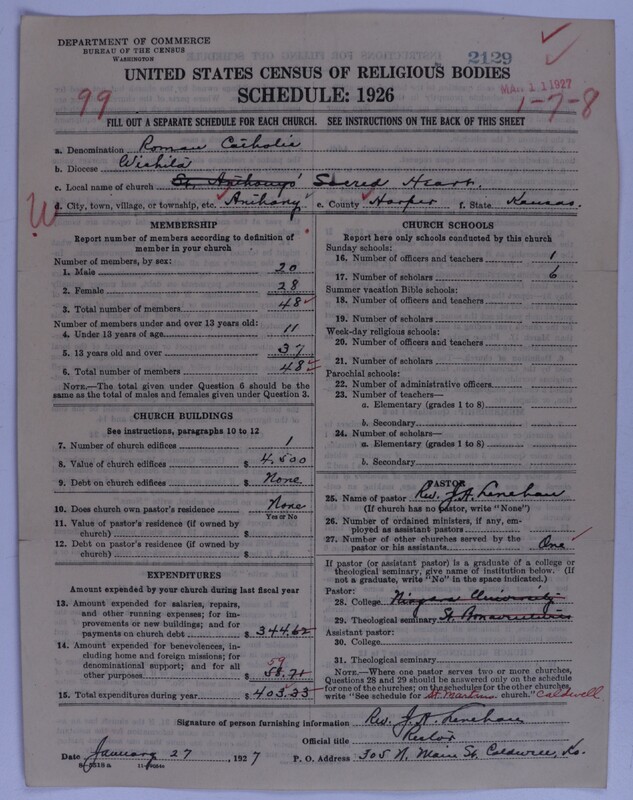 DEPARTMENT OF COMMERCE
BUREAU OF THE CENSUS
WASHINGTON
2129
MAR 11 1927
UNITED STATES CENSUS OF RELIGIOUS BODIES
SCHEDULE: 1926
99
1-7-8
FILL OUT A SEPARATE SCHEDULE FOR EACH CHURCH. SEE INSTRUCTIONS ON THE BACK OF THIS SHEET
a. Denomination Roman Catholic
b. Diocese Wichita
c. Local name of church St. Anthony's Sacred Heart.
W
d. City, town, village, or township, etc. Anthony e. County Harper f. State Kansas.
MEMBERSHIP
Report number of members according to definition of member in your church
Number of members, by sex:
1. Male 20
2. Female 28
3. Total number of members 48
Number of members under and over 13 years old:
4. Under 13 years of age 11
5. 13 years old and over 37
6. Total number of members 48
NOTE.—The total given under Question 6 should be the same as the total of males and females given under Question 3.
CHURCH BUILDINGS
See instructions, paragraphs 10 to 12
7. Number of church edifices 1
8. Value of church edifices $ 4,500
9. Debt on church edifices $ None
10. Does church own pastor's residence None
Yes or No
11. Value of pastor's residence (if owned by church) $
12. Debt on pastor's residence (if owned by church) $
EXPENDITURES
Amount expended by your church during last fiscal year
13. Amount expended for salaries, repairs, and other running expenses; for improvements or new buildings; and for payments on church debt $ 344.62
14. Amount expended for benevolences, including home and foreign missions; for denominational support; and for all other purposes $ 58.71
59
15. Total expenditures during year $ 403.33
CHURCH SCHOOLS
Report here only schools conducted by this church
Sunday schools:
16. Number of officers and teachers 1
17. Number of scholars 6
Summer vacation Bible schools:
18. Number of officers and teachers
19. Number of scholars
Week-day religious schools:
20. Number of officers and teachers
21. Number of scholars
Parochial schools:
22. Number of administrative officers
23. Number of teachers—
a. Elementary (grades 1 to 8)
b. Secondary
24. Number of scholars—
a. Elementary (grades 1 to 8)
b. Secondary
PASTOR
25. Name of pastor Rev. J. H. Lenehan
(If church has no pastor, write "None")
26. Number of ordained ministers, if any, employed as assistant pastors
27. Number of other churches served by the pastor or his assistants One
If pastor (or assistant pastor) is a graduate of a college or theological seminary, give name of institution below. (If not a graduate, write "No" in the space indicated.)
Pastor:
28. College Niagara University
29. Theological seminary St. Bonaventure
Assistant pastor:
30. College
31. Theological seminary
NOTE.—Where one pastor serves two or more churches, Questions 28 and 29 should be answered only on the schedule for one of the churches; on the schedules for the other churches, write "See schedule for St Martins church." Caldwell
Signature of person furnishing information Rev. J. H. Lenehan
Official title Rector
Date January 27, 1927 P. O. Address 305 N. Main St. Caldwell, Ks.